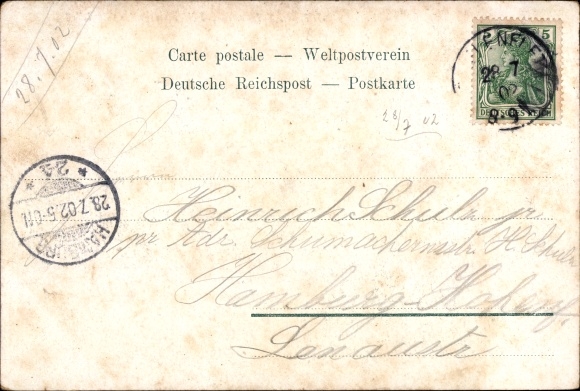 28.7.02
Carte postale — Weltpostverein
Deutsche Reichspost — Postkarte
5
DEUTSCHES REICH
28 7
02
8-9
28/7 02
* 2A *
28.7.02.5-6N
HAMBURG
Heinrich Schulz jr
pr Adr. Schumachermstr. H. Schulz
Hamburg-